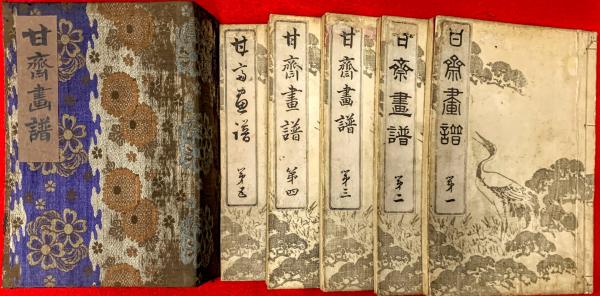 甘齋畫譜
甘齋畫譜
第一
甘齋畫譜
第二
甘齋畫譜
第三
甘齋畫譜
第四
甘斎画譜
第五